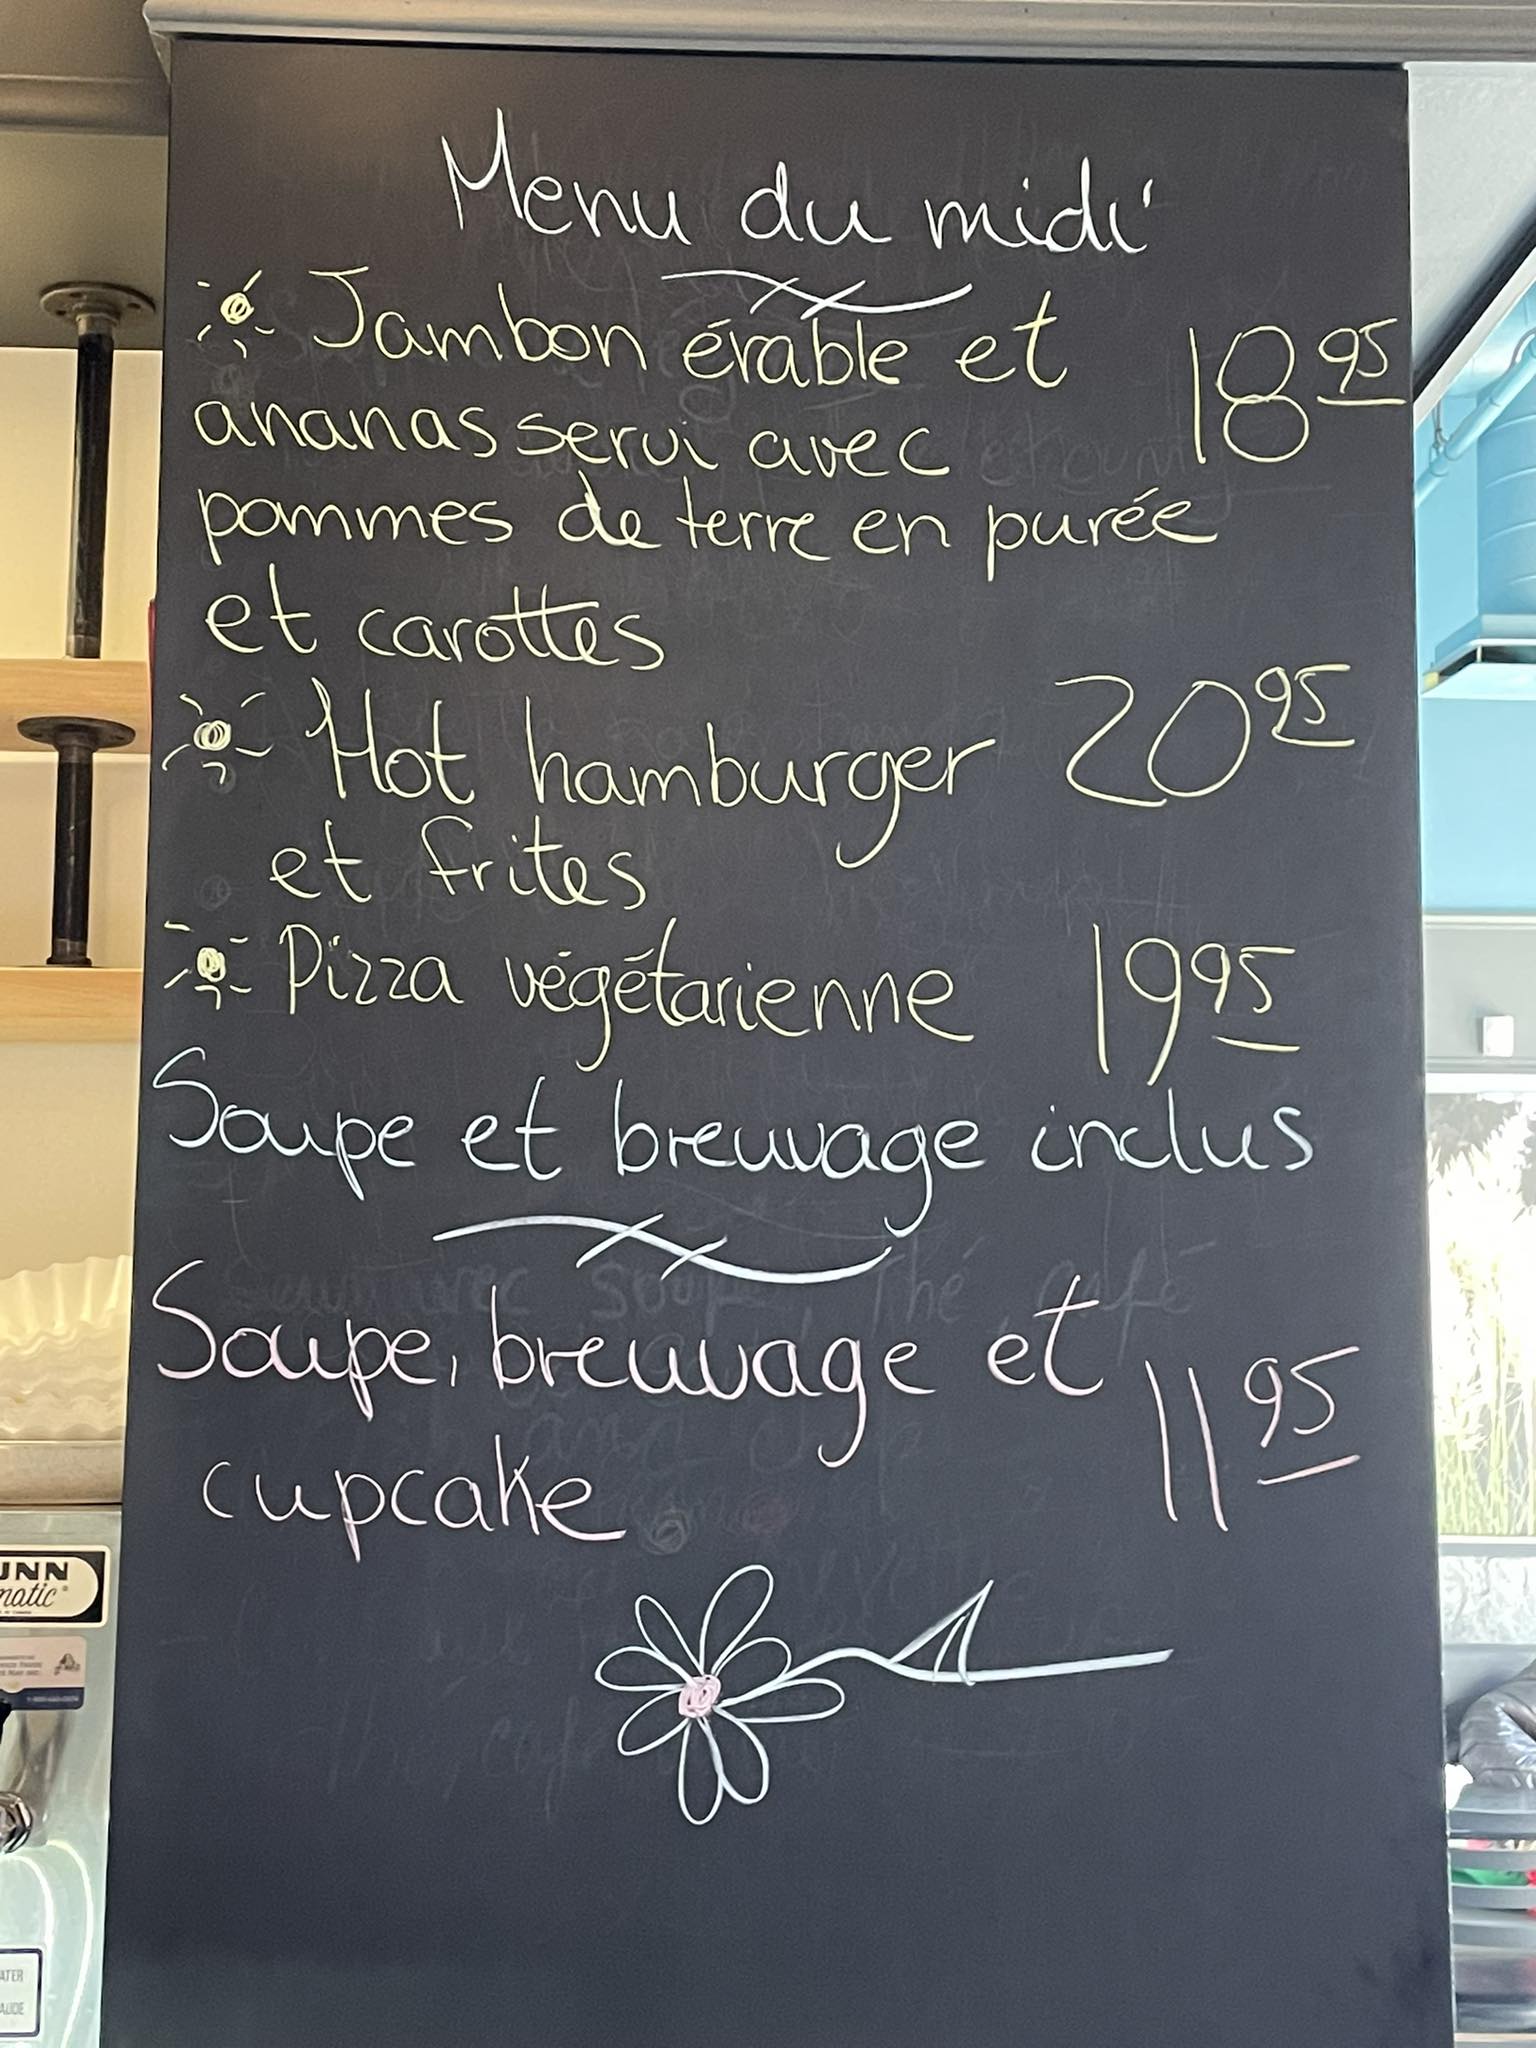 Menu du midi
Jambon érable et 18 95
ananas servi avec
pommes de terre en purée
et carottes
Hot hamburger 20 95
et frites
Pizza végétarienne 19 95
Soupe et breuvage inclus
Soupe, breuvage et 11 95
cupcake
UNN
matic®
ATER
AUDE